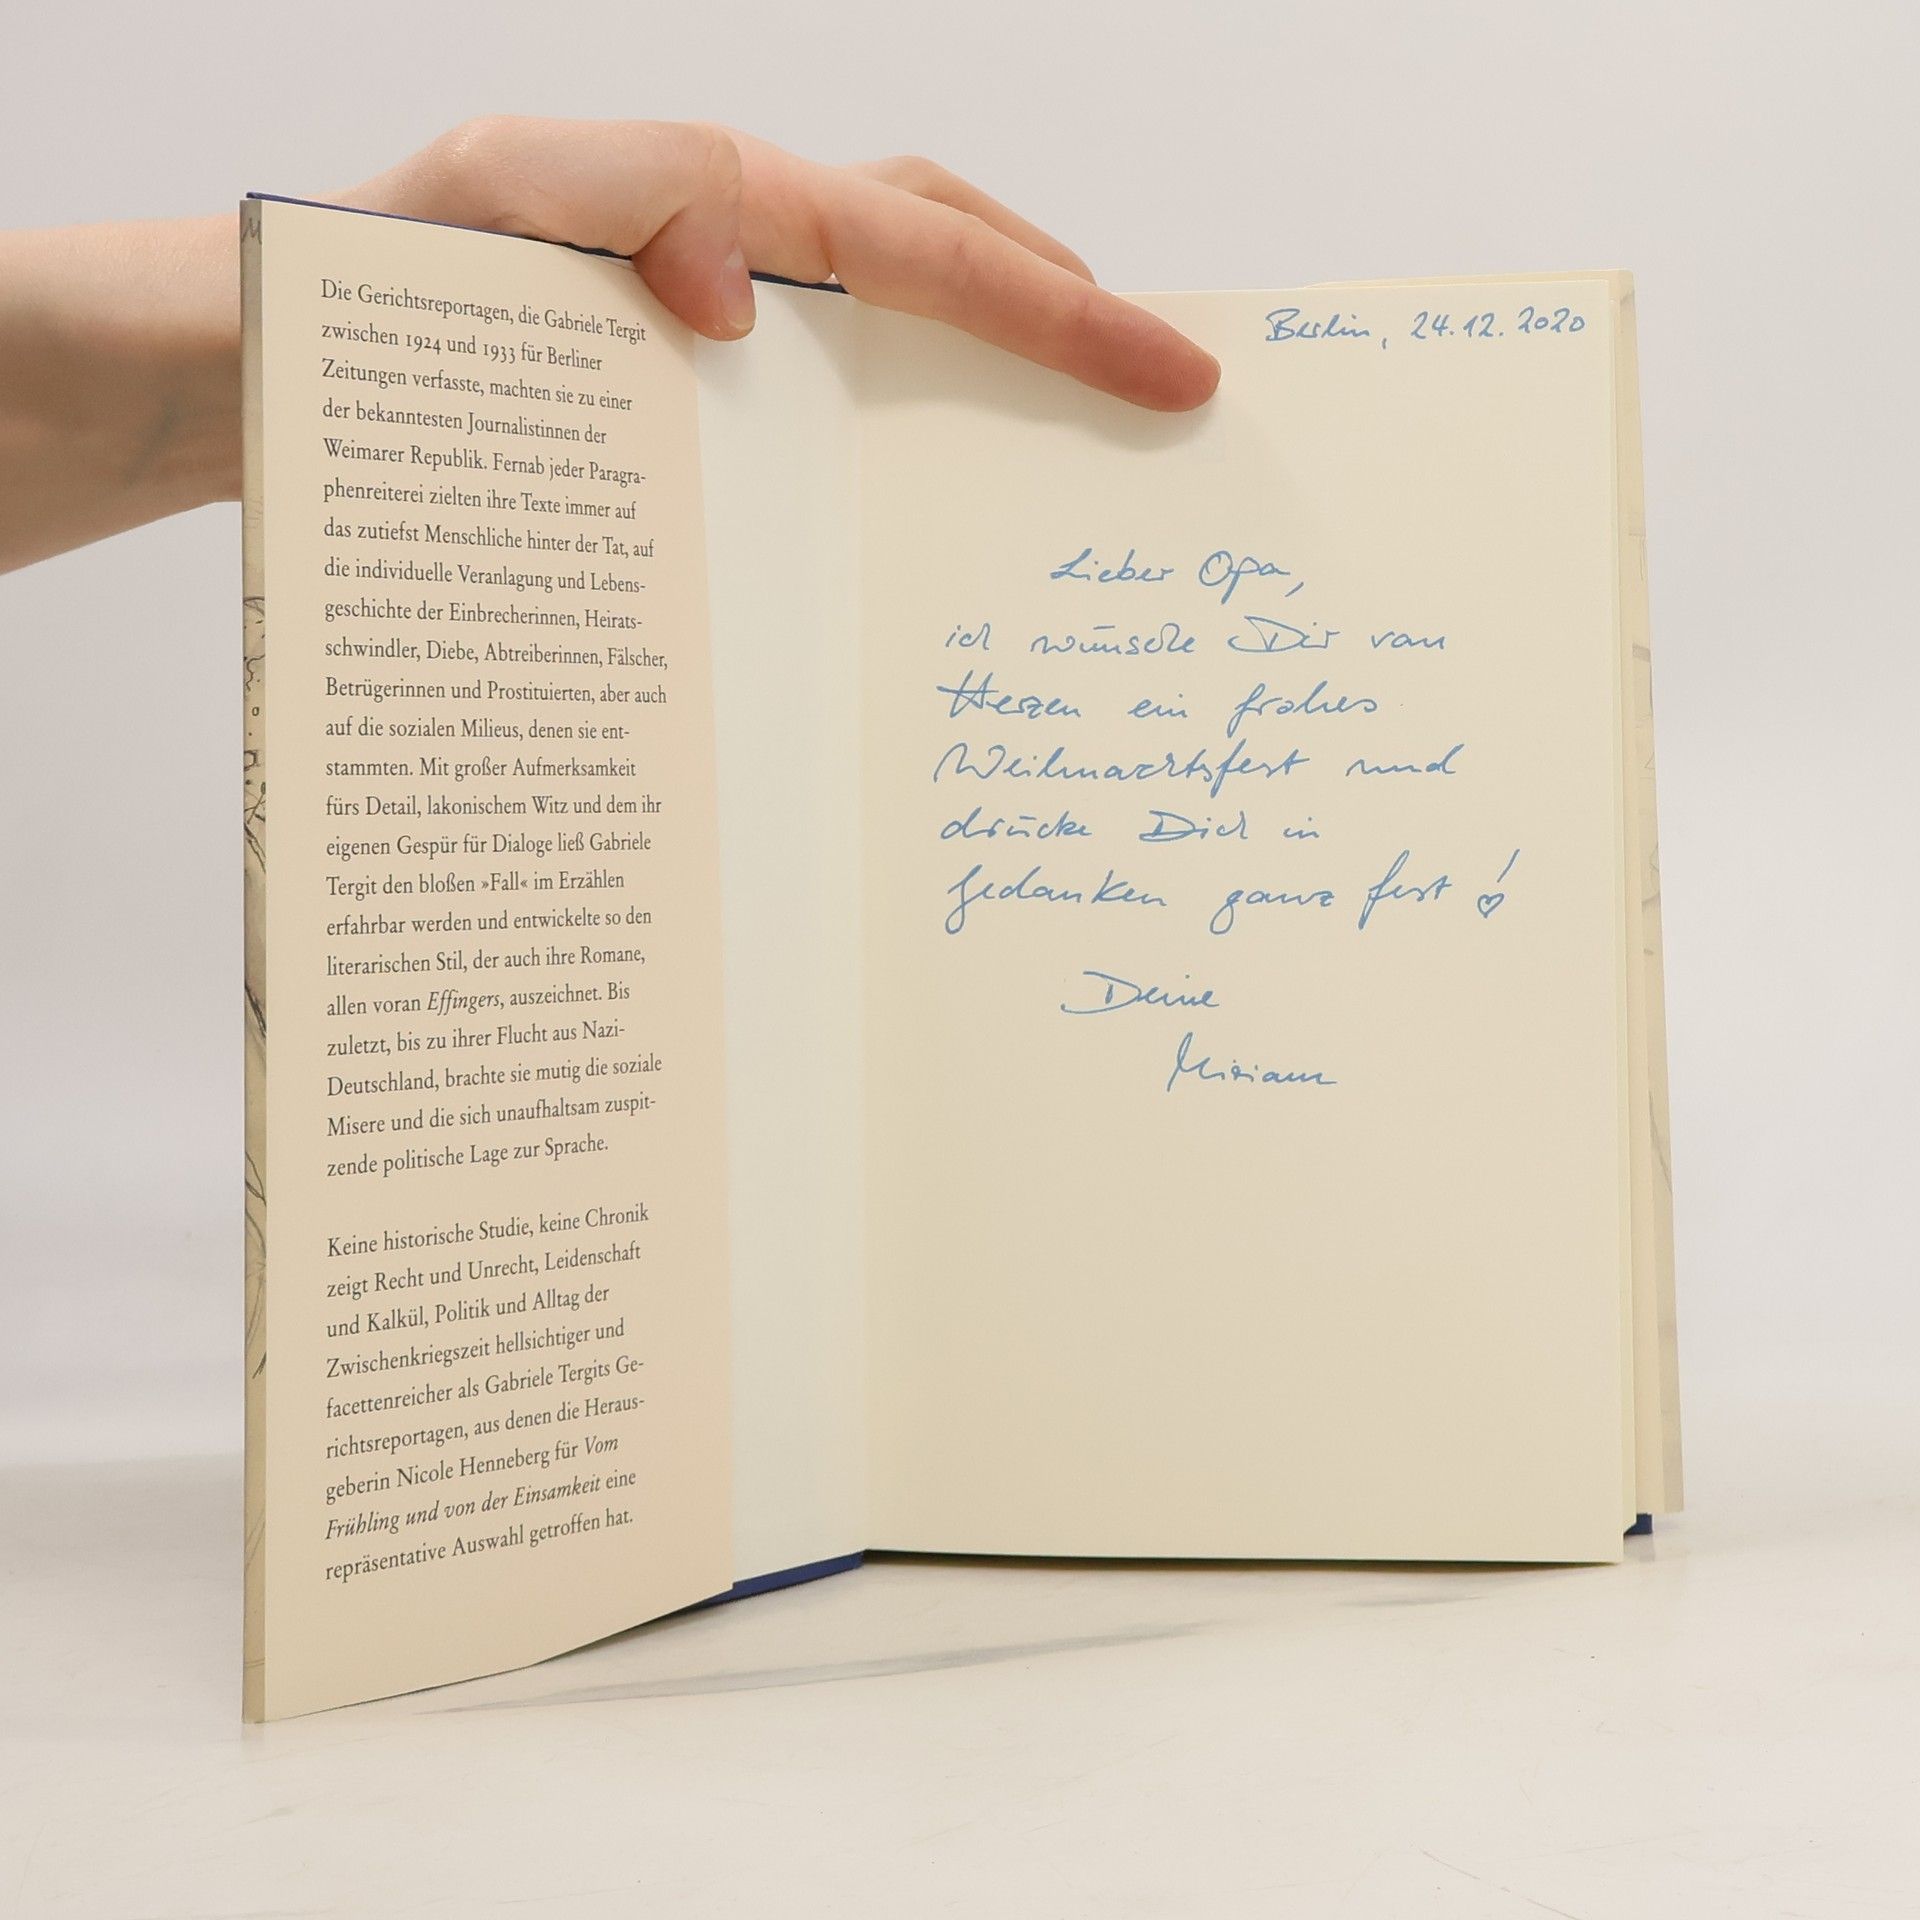 Die Gerichtsreportagen, die Gabriele Tergit
zwischen 1924 und 1933 für Berliner
Zeitungen verfasste, machten sie zu einer
der bekanntesten Journalistinnen der
Weimarer Republik. Fernab jeder Paragra-
phenreiterei zielten ihre Texte immer auf
das zutiefst Menschliche hinter der Tat, auf
die individuelle Veranlagung und Lebens-
geschichte der Einbrecherinnen, Heirats-
schwindler, Diebe, Abtreiberinnen, Fälscher,
Betrügerinnen und Prostituierten, aber auch
auf die sozialen Milieus, denen sie ent-
stammten. Mit großer Aufmerksamkeit
fürs Detail, lakonischem Witz und dem ihr
eigenen Gespür für Dialoge ließ Gabriele
Tergit den bloßen »Fall« im Erzählen
erfahrbar werden und entwickelte so den
literarischen Stil, der auch ihre Romane,
allen voran Effingers, auszeichnet. Bis
zuletzt, bis zu ihrer Flucht aus Nazi-
Deutschland, brachte sie mutig die soziale
Misere und die sich unaufhaltsam zuspit-
zende politische Lage zur Sprache.
Keine historische Studie, keine Chronik
zeigt Recht und Unrecht, Leidenschaft
und Kalkül, Politik und Alltag der
Zwischenkriegszeit hellsichtiger und
facettenreicher als Gabriele Tergits Ge-
richtsreportagen, aus denen die Heraus-
geberin Nicole Henneberg für Vom
Frühling und von der Einsamkeit eine
repräsentative Auswahl getroffen hat.
Berlin, 24.12.2020
Lieber Opa,
ich wünsche Dir von
Herzen ein frohes
Weihnachtsfest und
drücke Dich in
Gedanken ganz fest!
Deine
Miriam